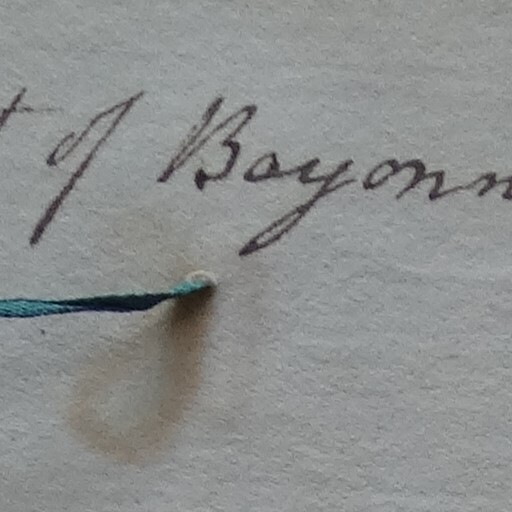 of Bayonn